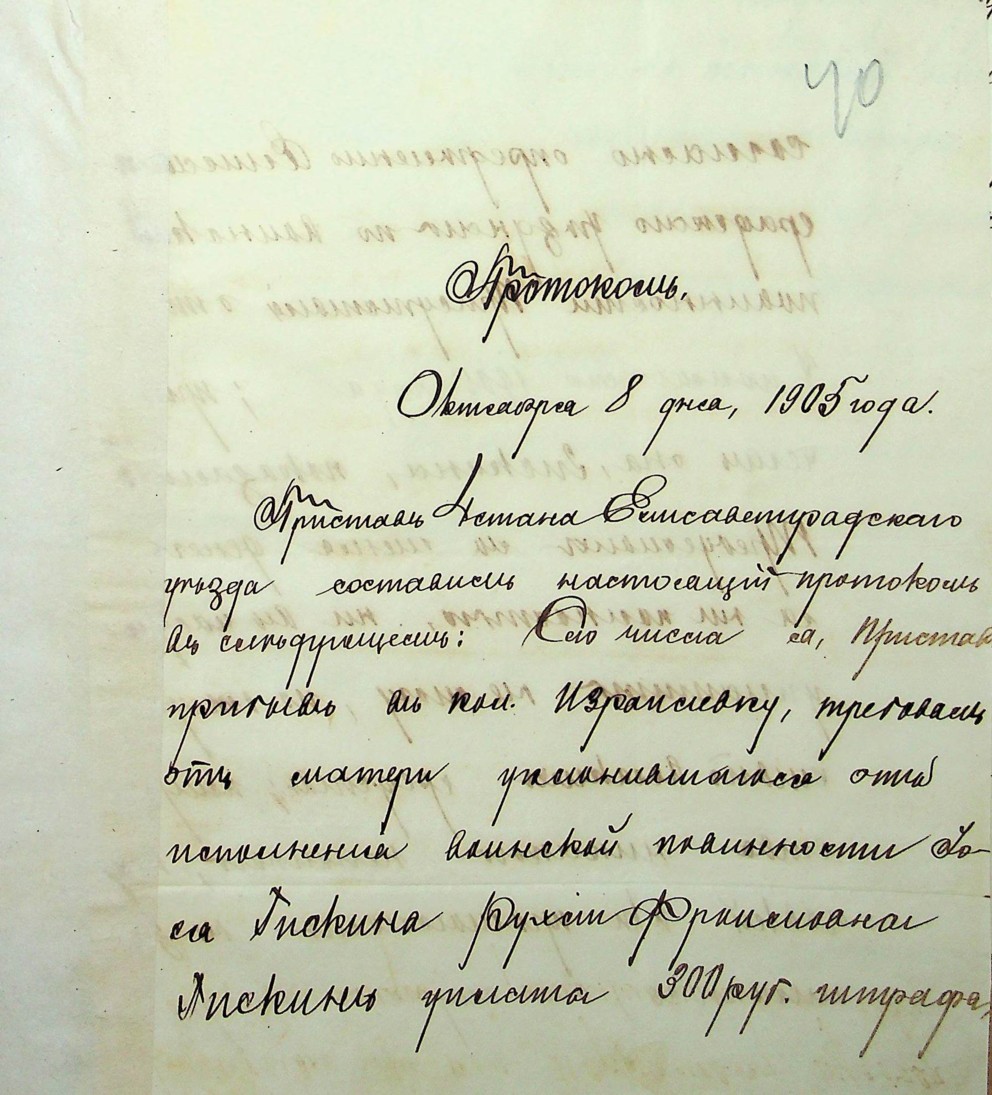 40
Протоколъ.
Октября 8 дня, 1905 года.
Приставъ 4 стана Елисаветградскаго
уѣзда составилъ настоящій протоколъ
въ слѣдующемъ: Сего числа я, Пристав
прибывъ въ кол. Израилевку, требовалъ
отъ матери уклонившагося отъ
исполненія воинской повинности Іо-
ся Гискина Рухли
Гискинъ уплата 300 руб. штрафа,